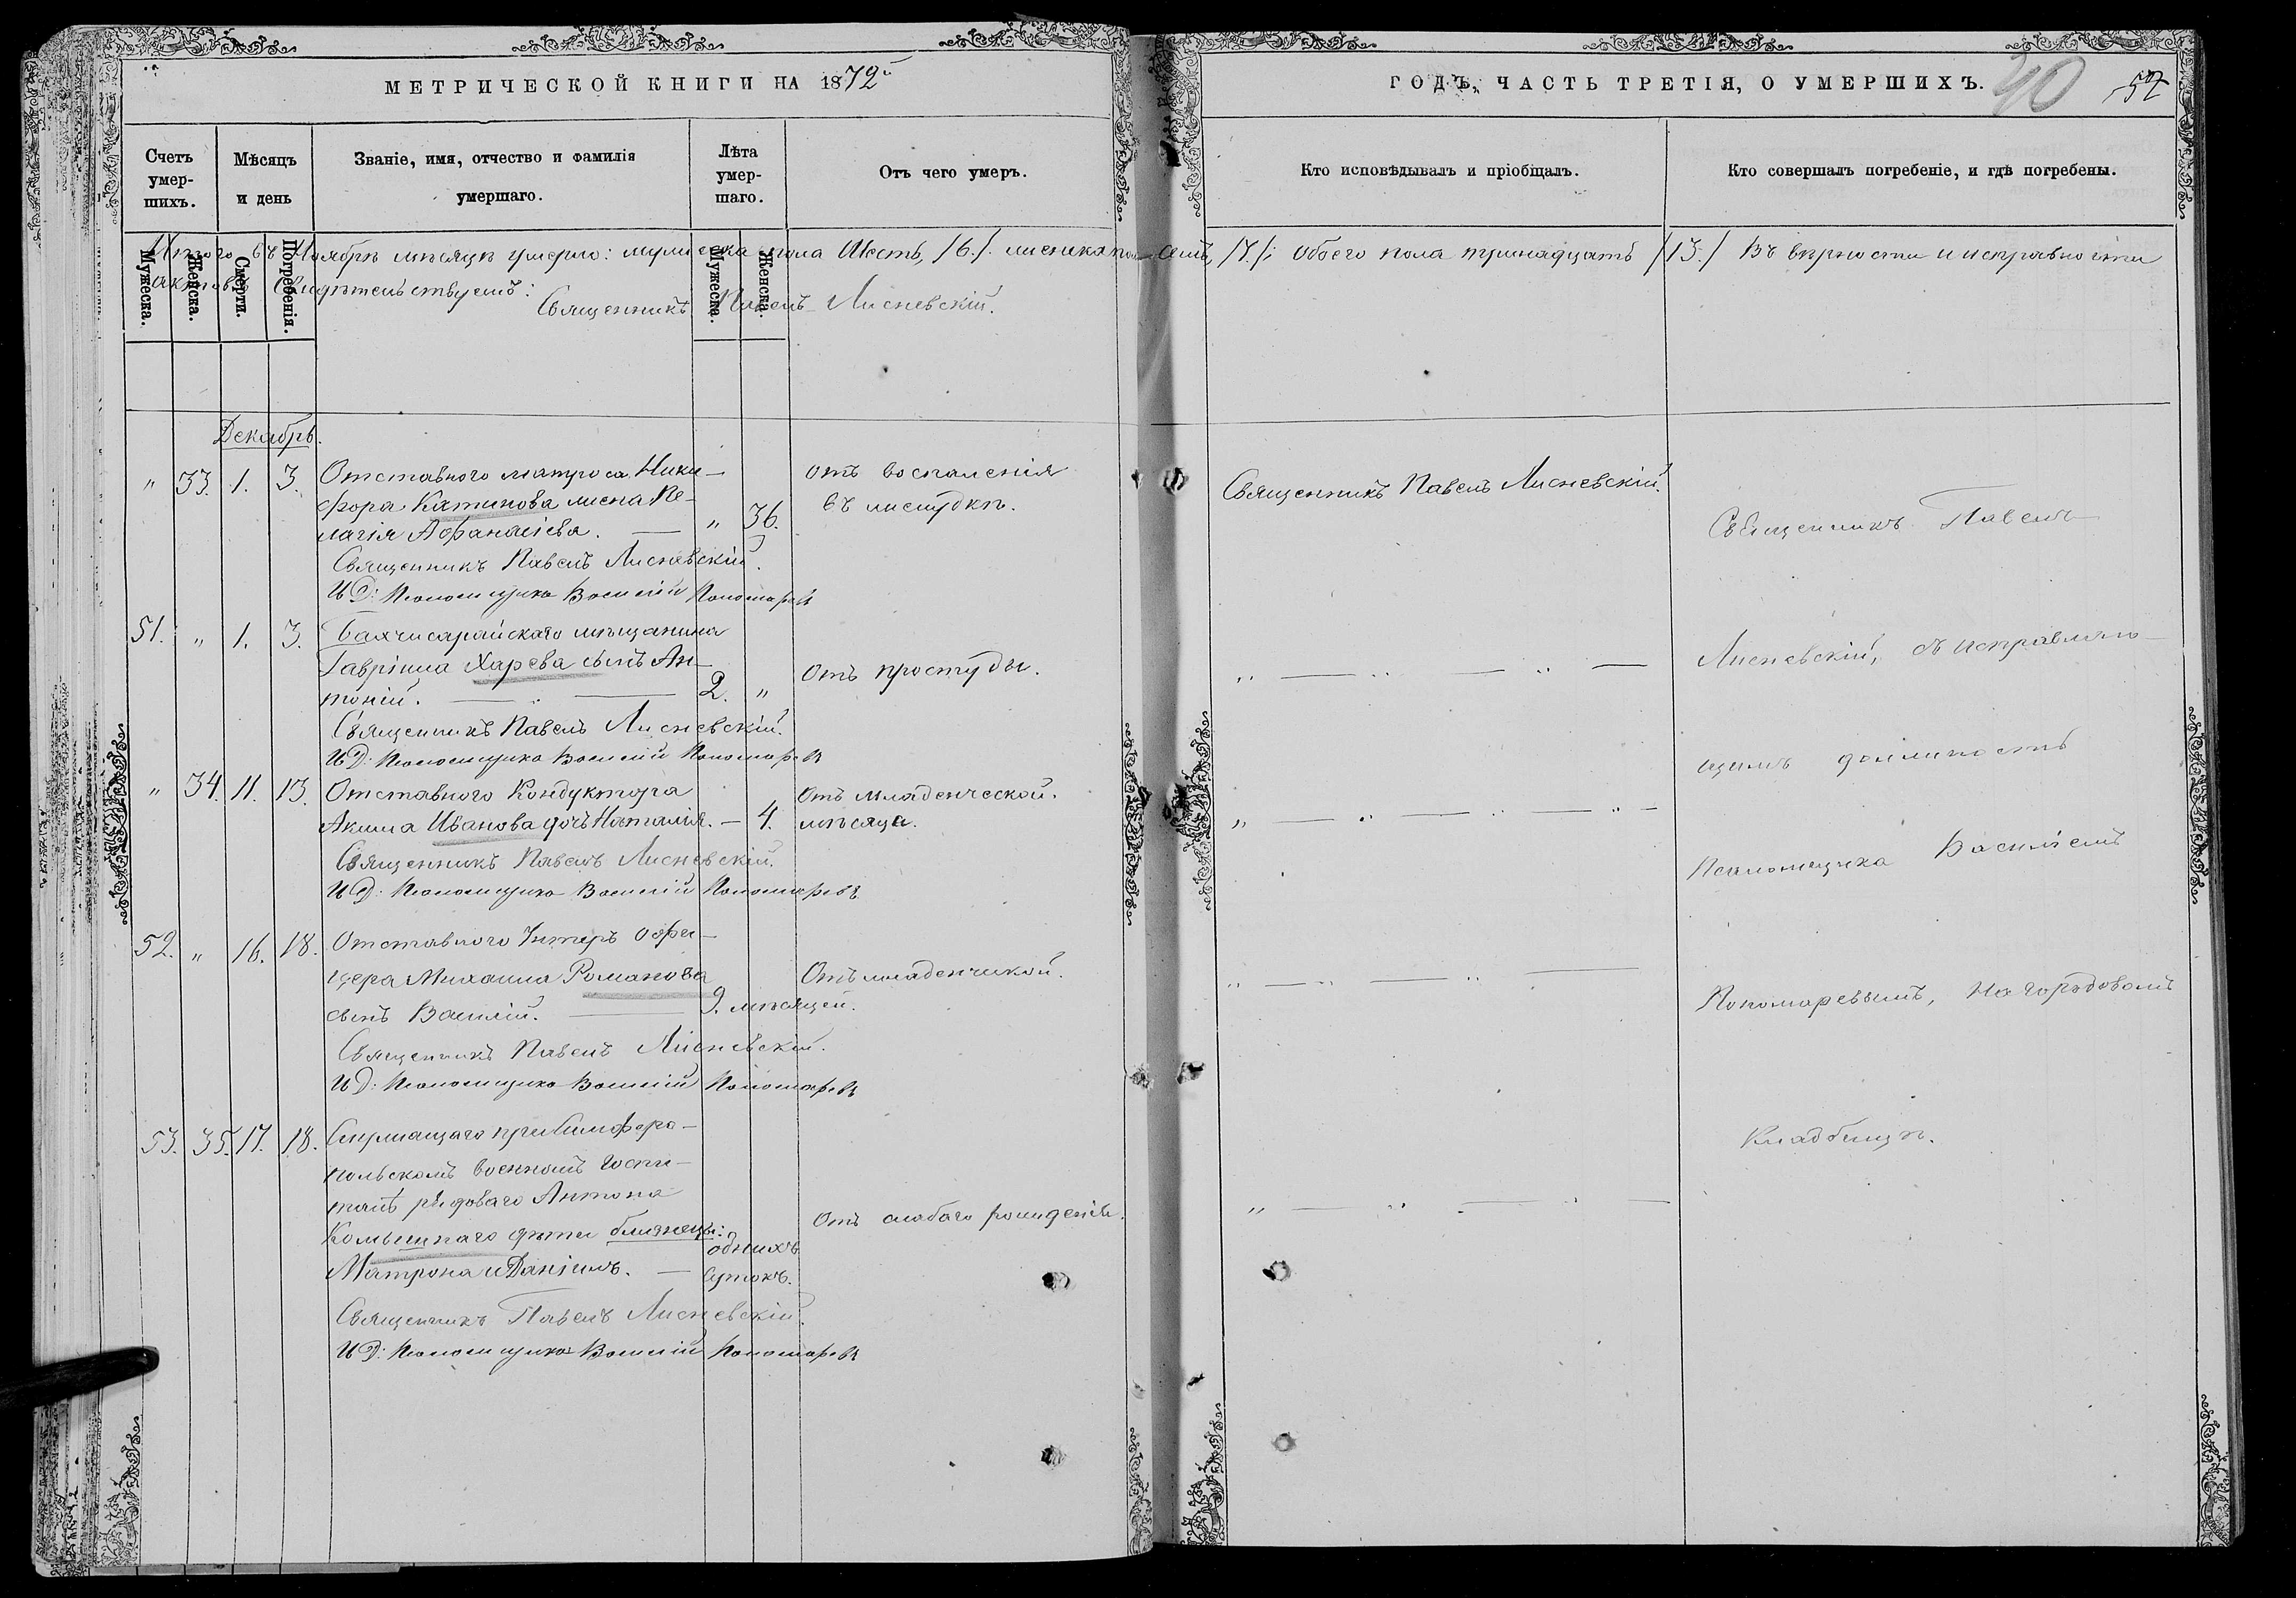 МЕТРИЧЕСКОЙ КНИГИ НА 1872й
ГОДЪ, ЧАСТЬ ТРЕТІЯ, О УМЕРШИХЪ.
40
52
Счетъ умер-шихъ.
Мѣсяцъ и день
Званіе, имя, отчество и фамилія умершаго.
Лѣта умер-шаго.
Отъ чего умеръ.
Кто исповѣдывалъ и пріобщалъ.
Кто совершалъ погребеніе, и гдѣ погребены.
Мужеска.
Женска.
Смерти.
Погребенія.
Мужеска.
Женска.
Итого въ Ноябрѣ мѣсяцѣ умерло: мужеска пола Шесть, /6./. женска пола Семь, /7./: Обоего пола тринадцать /13./ Въ вѣрности и исправности
актовъ свидѣтельствуемъ:
Священникъ Павелъ Лисневскій.
Декабрь.
" 33. 1. 3. Отставного матроса Ники-
фора Катинова жена Пе-
лагія Афанасіева. — " 36.
отъ воспаленія
въ желудкѣ.
Священникъ Павелъ Лисневскій.
Священникъ Павелъ Лисневскій.
И Д: Псаломщика Василій Пономаревъ
51. " 1. 3. Бахчисарайскаго мѣщанина
Гавріила Харева сынъ Ан-
тоній. — 2. "
Отъ простуды.
Священникъ Павелъ Лисневскій.
И Д: Псаломщика Василій Пономаревъ
" 34. 11. 13. Отставного Кондуктора
Акима Иванова дочь Наталія. — 4.
Отъ младенческой.
мѣсяца.
Священникъ Павелъ Лисневскій.
И Д: Псаломщика Василій Пономаревъ
52. " 16. 18. Отставного Унтеръ офи-
цера Михаила Романова
сынъ Василій. — 9. мѣсяцей.
Отъ младенческой.
Священникъ Павелъ Лисневскій.
И Д: Псаломщика Василій Пономаревъ
53. 35. 17. 18. Служащаго при Симферо-
польскомъ военномъ госпи-
талѣ рядоваго Антона
дѣти близнецы:
Матрона и Даніилъ. —
однихъ
сутокъ.
Отъ слабаго рожденія.
Священникъ Павелъ Лисневскій.
И Д: Псаломщика Василій Пономаревъ
Священникъ Павелъ
Лисневскій, съ исправляю-
щимъ должность
Псаломщика Василіемъ
Пономаревымъ, На городовомъ
Кладбищѣ.